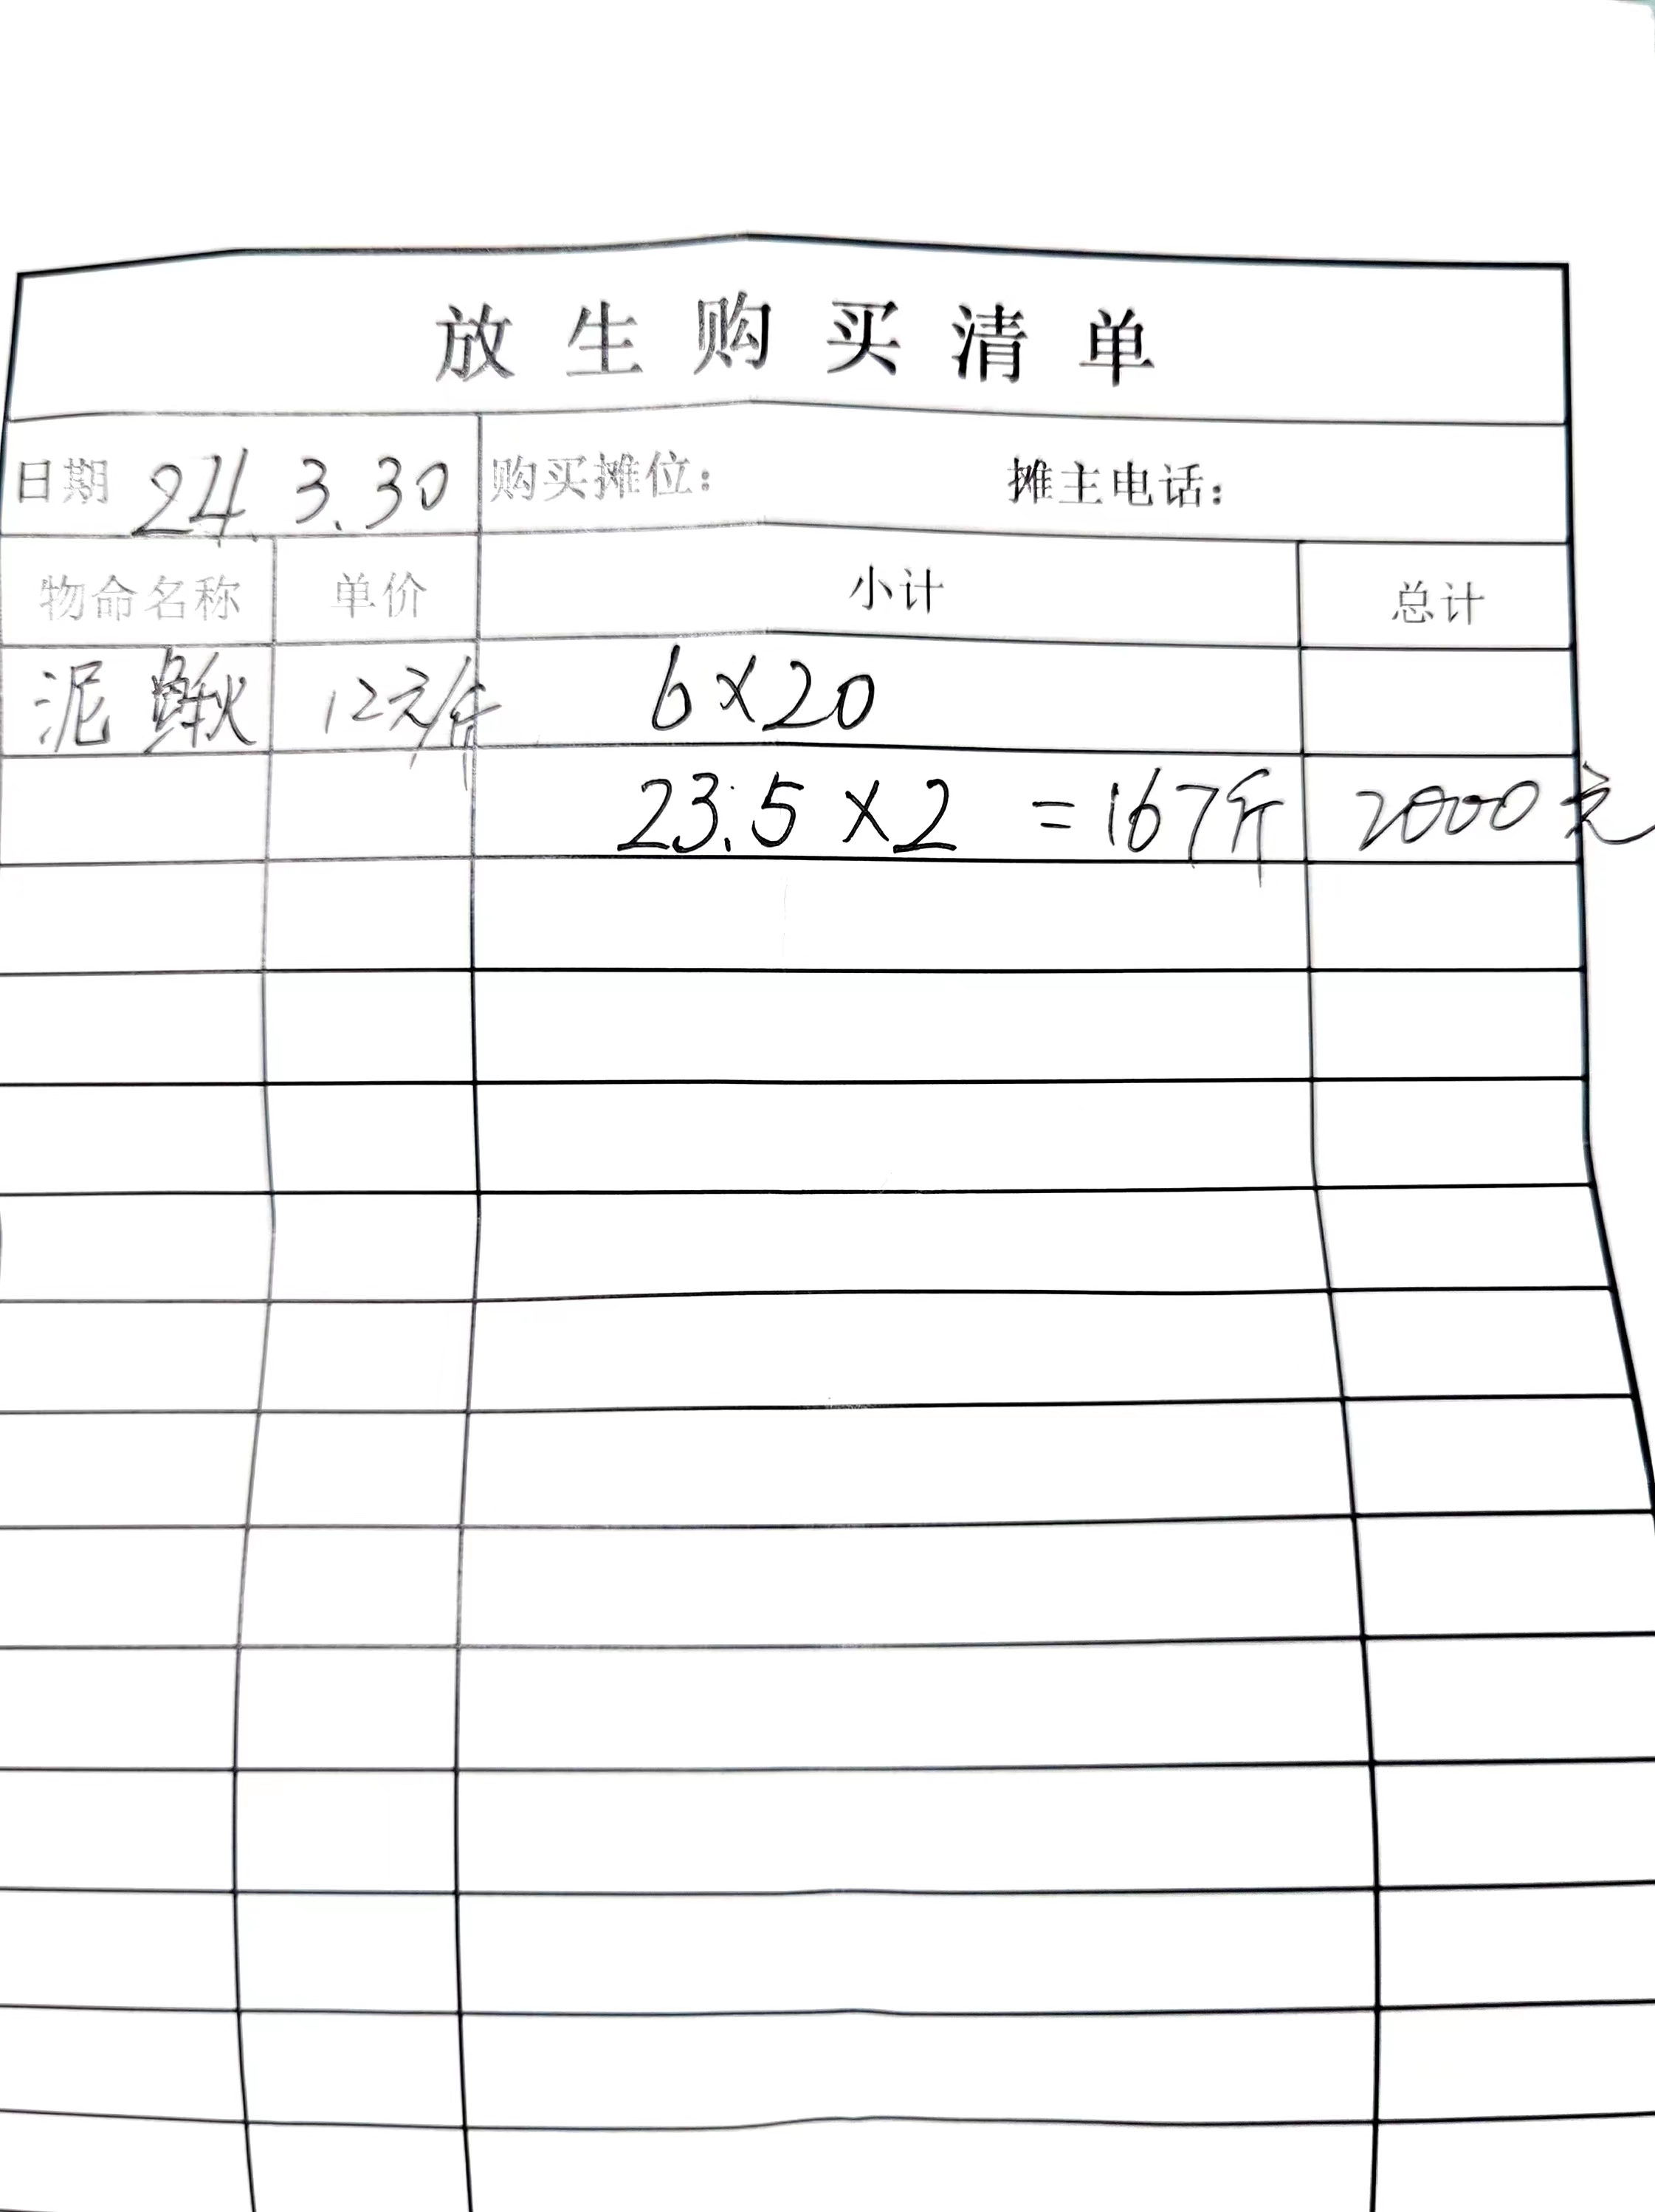 放生购买清单
日期 24. 3. 30 购买摊位： 摊主电话：
物命名称 单价 小计 总计
泥鳅 12元/斤 6×20
23.5×2 =167斤 2000元